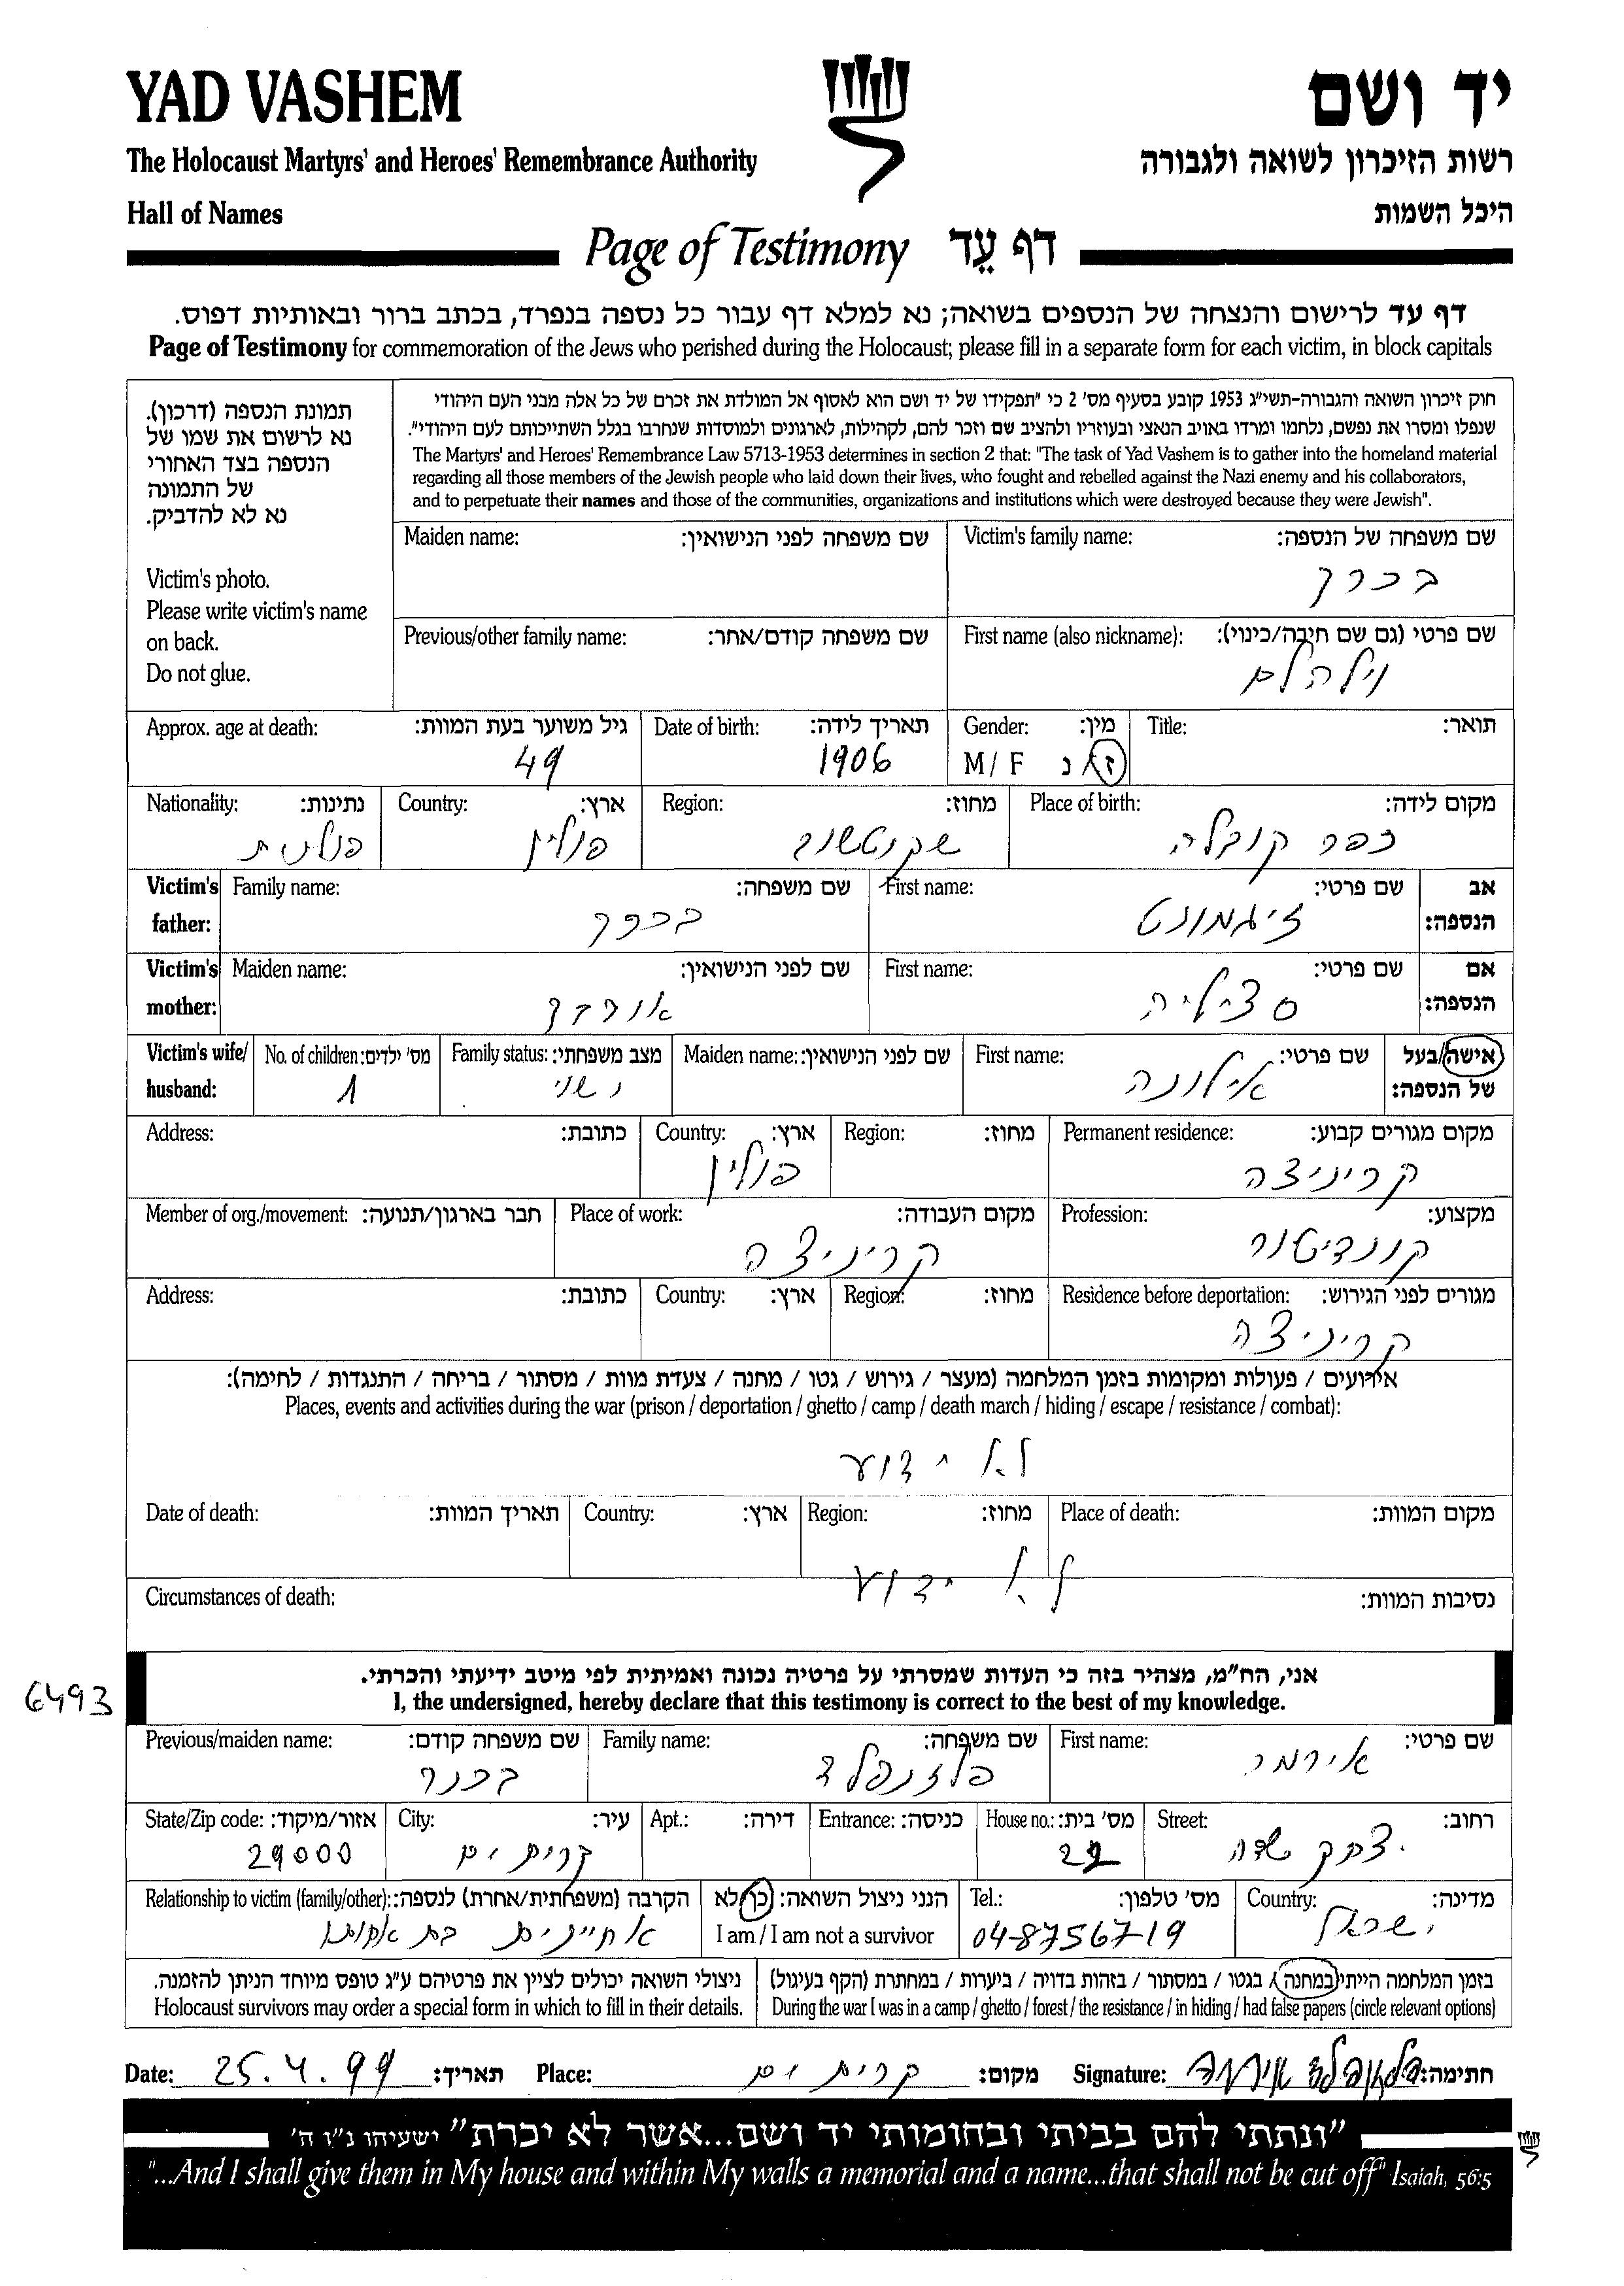 YAD VASHEM
יד ושם
The Holocaust Martyrs' and Heroes' Remembrance Authority
רשות הזיכרון לשואה ולגבורה
Hall of Names
היכל השמות
Page of Testimony דף עֵד
דף עד לרישום והנצחה של הנספים בשואה; נא למלא דף עבור כל נספה בנפרד, בכתב ברור ובאותיות דפוס.
Page of Testimony for commemoration of the Jews who perished during the Holocaust; please fill in a separate form for each victim, in block capitals
תמונת הנספה (דרכון).
נא לרשום את שמו של
הנספה בצד האחורי
של התמונה
נא לא להדביק.
Victim's photo.
Please write victim's name
on back.
Do not glue.
חוק זיכרון השואה והגבורה-תשי"ג 1953 קובע בסעיף מס' 2 כי "תפקידו של יד ושם הוא לאסוף אל המולדת את זכרם של כל אלה מבני העם היהודי
שנפלו ומסרו את נפשם, נלחמו ומרדו באויב הנאצי ובעוזריו ולהציב שם וזכר להם, לקהילות, לארגונים ולמוסדות שנחרבו בגלל השתייכותם לעם היהודי".
The Martyrs' and Heroes' Remembrance Law 5713-1953 determines in section 2 that: "The task of Yad Vashem is to gather into the homeland material
regarding all those members of the Jewish people who laid down their lives, who fought and rebelled against the Nazi enemy and his collaborators,
and to perpetuate their names and those of the communities, organizations and institutions which were destroyed because they were Jewish".
Maiden name: שם משפחה לפני הנישואין: Victim's family name: שם משפחה של הנספה:
בכרך
Previous/other family name: שם משפחה קודם/אחר: First name (also nickname): שם פרטי (גם שם חיבה/כינוי):
וילהלם
Approx. age at death: גיל משוער בעת המוות: Date of birth: תאריך לידה: Gender: מין: Title: תואר:
49 1906 M / F ז / נ
Nationality: נתינות: Country: ארץ: Region: מחוז: Place of birth: מקום לידה:
פולנית פולין כפר קובלה
Victim's father: Family name: שם משפחה: First name: שם פרטי: אב הנספה:
בכרך זיגמונט
Victim's mother: Maiden name: שם לפני הנישואין: First name: שם פרטי: אם הנספה:
אורבך סציליה
Victim's wife/ husband: No. of children: מס' ילדים: Family status: מצב משפחתי: Maiden name: שם לפני הנישואין: First name: שם פרטי: אישה/בעל של הנספה:
1 נשוי אילונה
Address: כתובת: Country: ארץ: Region: מחוז: Permanent residence: מקום מגורים קבוע:
פולין קריניצה
Member of org./movement: חבר בארגון/תנועה: Place of work: מקום העבודה: Profession: מקצוע:
קריניצה קונדיטור
Address: כתובת: Country: ארץ: Region: מחוז: Residence before deportation: מגורים לפני הגירוש:
קריניצה
אירועים / פעולות ומקומות בזמן המלחמה (מעצר / גירוש / גטו / מחנה / צעדת מוות / מסתור / בריחה / התנגדות / לחימה):
Places, events and activities during the war (prison / deportation / ghetto / camp / death march / hiding / escape / resistance / combat):
לא ידוע
Date of death: תאריך המוות: Country: ארץ: Region: מחוז: Place of death: מקום המוות:
לא ידוע
Circumstances of death: נסיבות המוות:
אני, הח"מ, מצהיר בזה כי העדות שמסרתי על פרטיה נכונה ואמיתית לפי מיטב ידיעתי והכרתי.
I, the undersigned, hereby declare that this testimony is correct to the best of my knowledge.
6493
Previous/maiden name: שם משפחה קודם: Family name: שם משפחה: First name: שם פרטי:
בכנר פלזנפלד
State/Zip code: אזור/מיקוד: City: עיר: Apt.: דירה: Entrance: כניסה: House no.: מס' בית: Street: רחוב:
29000 קרית ים 22 יצחק שדה
Relationship to victim (family/other): הקרבה (משפחתית/אחרת) לנספה: הנני ניצול השואה: כן/לא Tel.: מס' טלפון: Country: מדינה:
אחיינית בת אחותו I am / I am not a survivor 04-8756719 ישראל
ניצולי השואה יכולים לציין את פרטיהם ע"ג טופס מיוחד הניתן להזמנה.
Holocaust survivors may order a special form in which to fill in their details.
בזמן המלחמה הייתי במחנה / בגטו / במסתור / בזהות בדויה / ביערות / במחתרת (הקף בעיגול)
During the war I was in a camp / ghetto / forest / the resistance / in hiding / had false papers (circle relevant options)
Date: 25.4.99 תאריך: Place: קרית ים מקום: Signature: חתימה:
"ונתתי להם בביתי ובחומותי יד ושם...אשר לא יכרת" ישעיהו נ"ו ה'
"...And I shall give them in My house and within My walls a memorial and a name...that shall not be cut off" Isaiah, 56:5